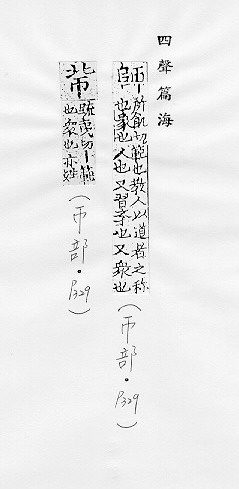 四聲篇海
師 所飢切範也教人以道者之称
也象也人也又習也又衆也
(帀部·P329)
疏夷切範
也象也亦姓
(帀部·P329)